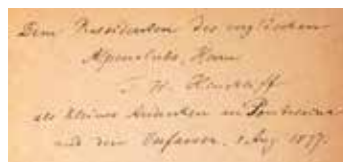 Dem Präsidenten des englischen
Alpenclubs, Herrn
T. W. Hinchliff
als kleines Andenken an Pontresina
und den Verfasser. 1 Aug 1877.